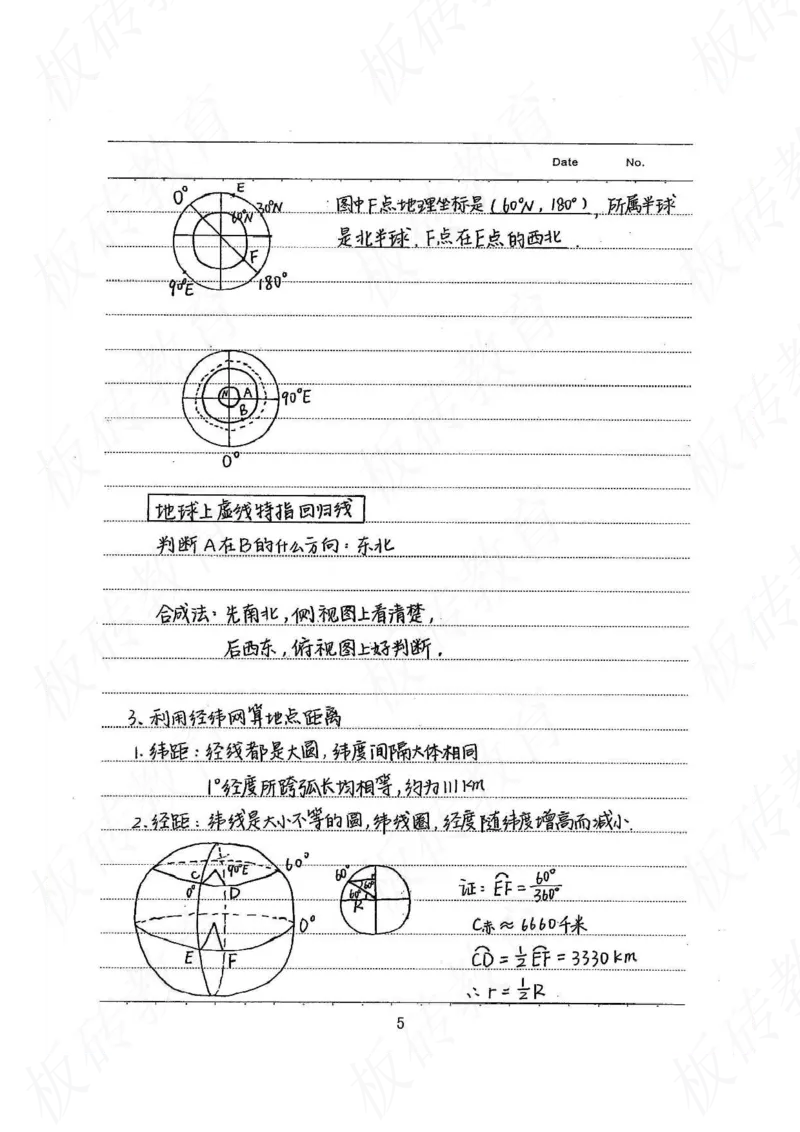 Date No.
0° E 30°N 60°N F 90°E 180°
图中F点地理坐标是(60°N, 180°), 所属半球
是北半球, F点在E点的西北.
N A B 90°E
0°
地球上虚线特指回归线
判断A在B的什么方向: 东北
合成法: 先南北, 侧视图上看清楚,
后西东, 俯视图上好判断.
3、利用经纬网算地点距离
1. 纬距: 经线都是大圆, 纬度间隔大体相同
1°经度所跨弧长均相等, 约为111km
2. 经距: 纬线是大小不等的圆, 纬线圈, 经度随纬度增高而减小.
C 90°E 60° 0° D 0° E F
60° 60° 60° R
证: EF = 60°/360°
C赤 ≈ 6660千米
CD = 1/2 EF = 3330km
∴ r = 1/2 R
5
板砖教育